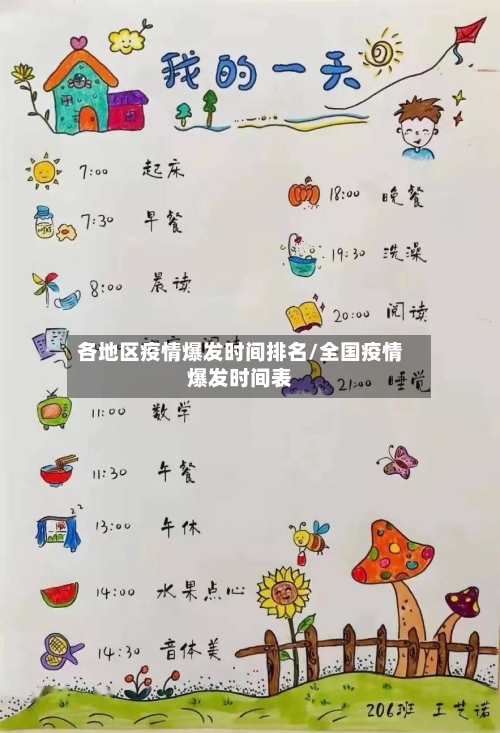 我的一天
7:00 起床
7:30 早餐
8:00 晨读
各地区疫情爆发时间排名/全国疫情
爆发时间表
11:00 数学
11:30 午餐
13:00 午休
14:00 水果点心
14:30 音体美
18:00 晚餐
19:30 洗澡
20:00 阅读
21:00 睡觉
206班 王艺诺